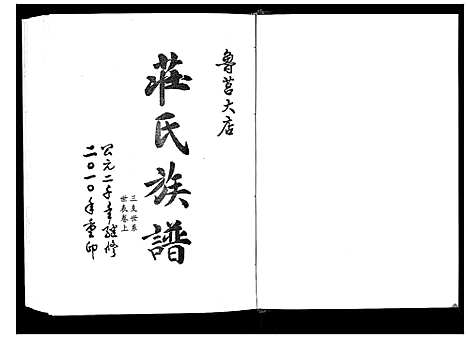 魯莒大店
莊氏族譜
三支世系
世表卷上
公元二千年續修
二〇一〇年重印